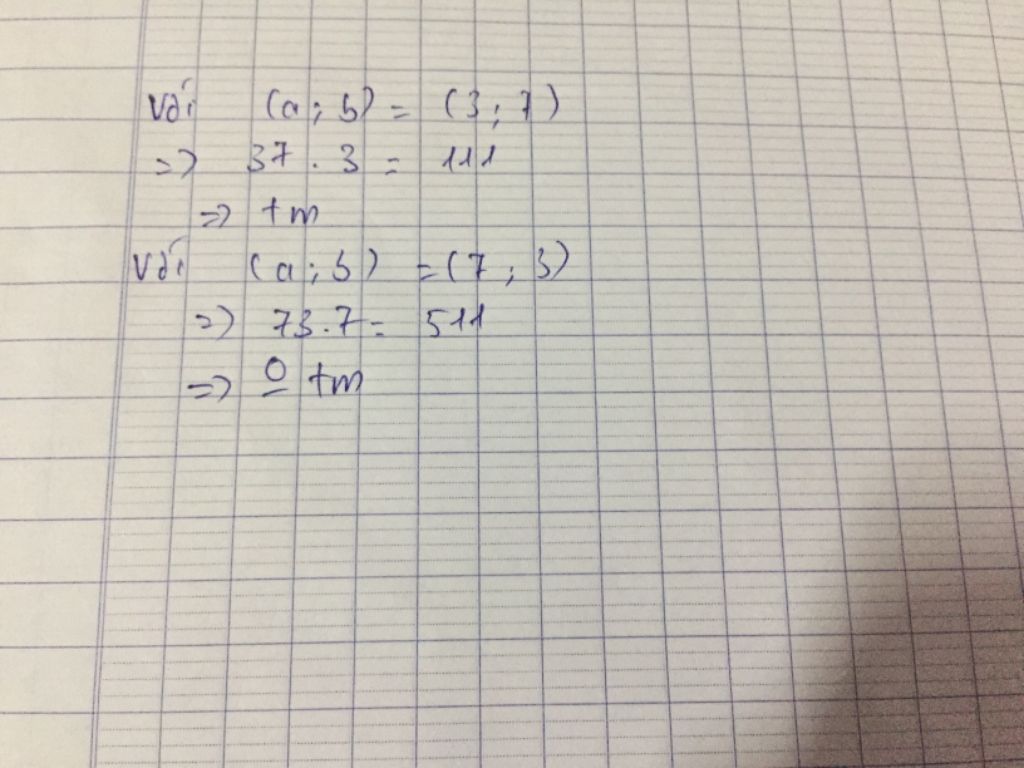 Với (a; b) = (3; 7)
=> 37 . 3 = 111
=> tm
Với (a; b) = (7; 3)
=> 73.7 = 511
=> o tm